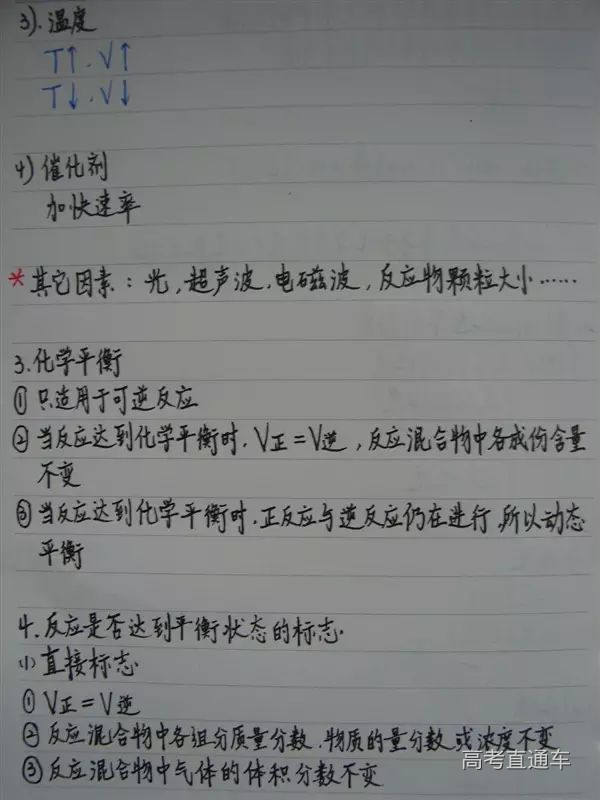 3).温度
T↑.V↑
T↓.V↓
4)催化剂
加快速率
*其它因素:光,超声波,电磁波,反应物颗粒大小……
3.化学平衡
①只适用于可逆反应
②当反应达到化学平衡时.V正=V逆,反应混合物中各成份含量
不变
③当反应达到化学平衡时.正反应与逆反应仍在进行,所以动态
平衡
4.反应是否达到平衡状态的标志.
(1)直接标志
①V正=V逆
②反应混合物中各组分质量分数.物质的量分数或浓度不变
③反应混合物中气体的体积分数不变
高考直通车